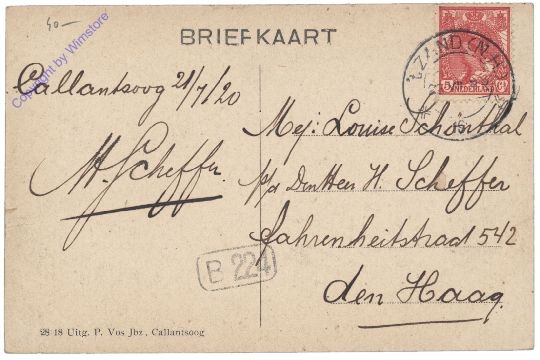 40-
Copyright by Wimstore
BRIEFKAART
Callantsoog 21/7/20
M. Scheffer.
Mej: Louise Schonthal
p/a Den Heer H. Scheffer
Fahrenheitstraat 542
den Haag.
5 Ct
NEDERLAND
'T ZAND (N.H.)
B 224
28 18 Uitg. P. Vos Jbz., Callantsoog